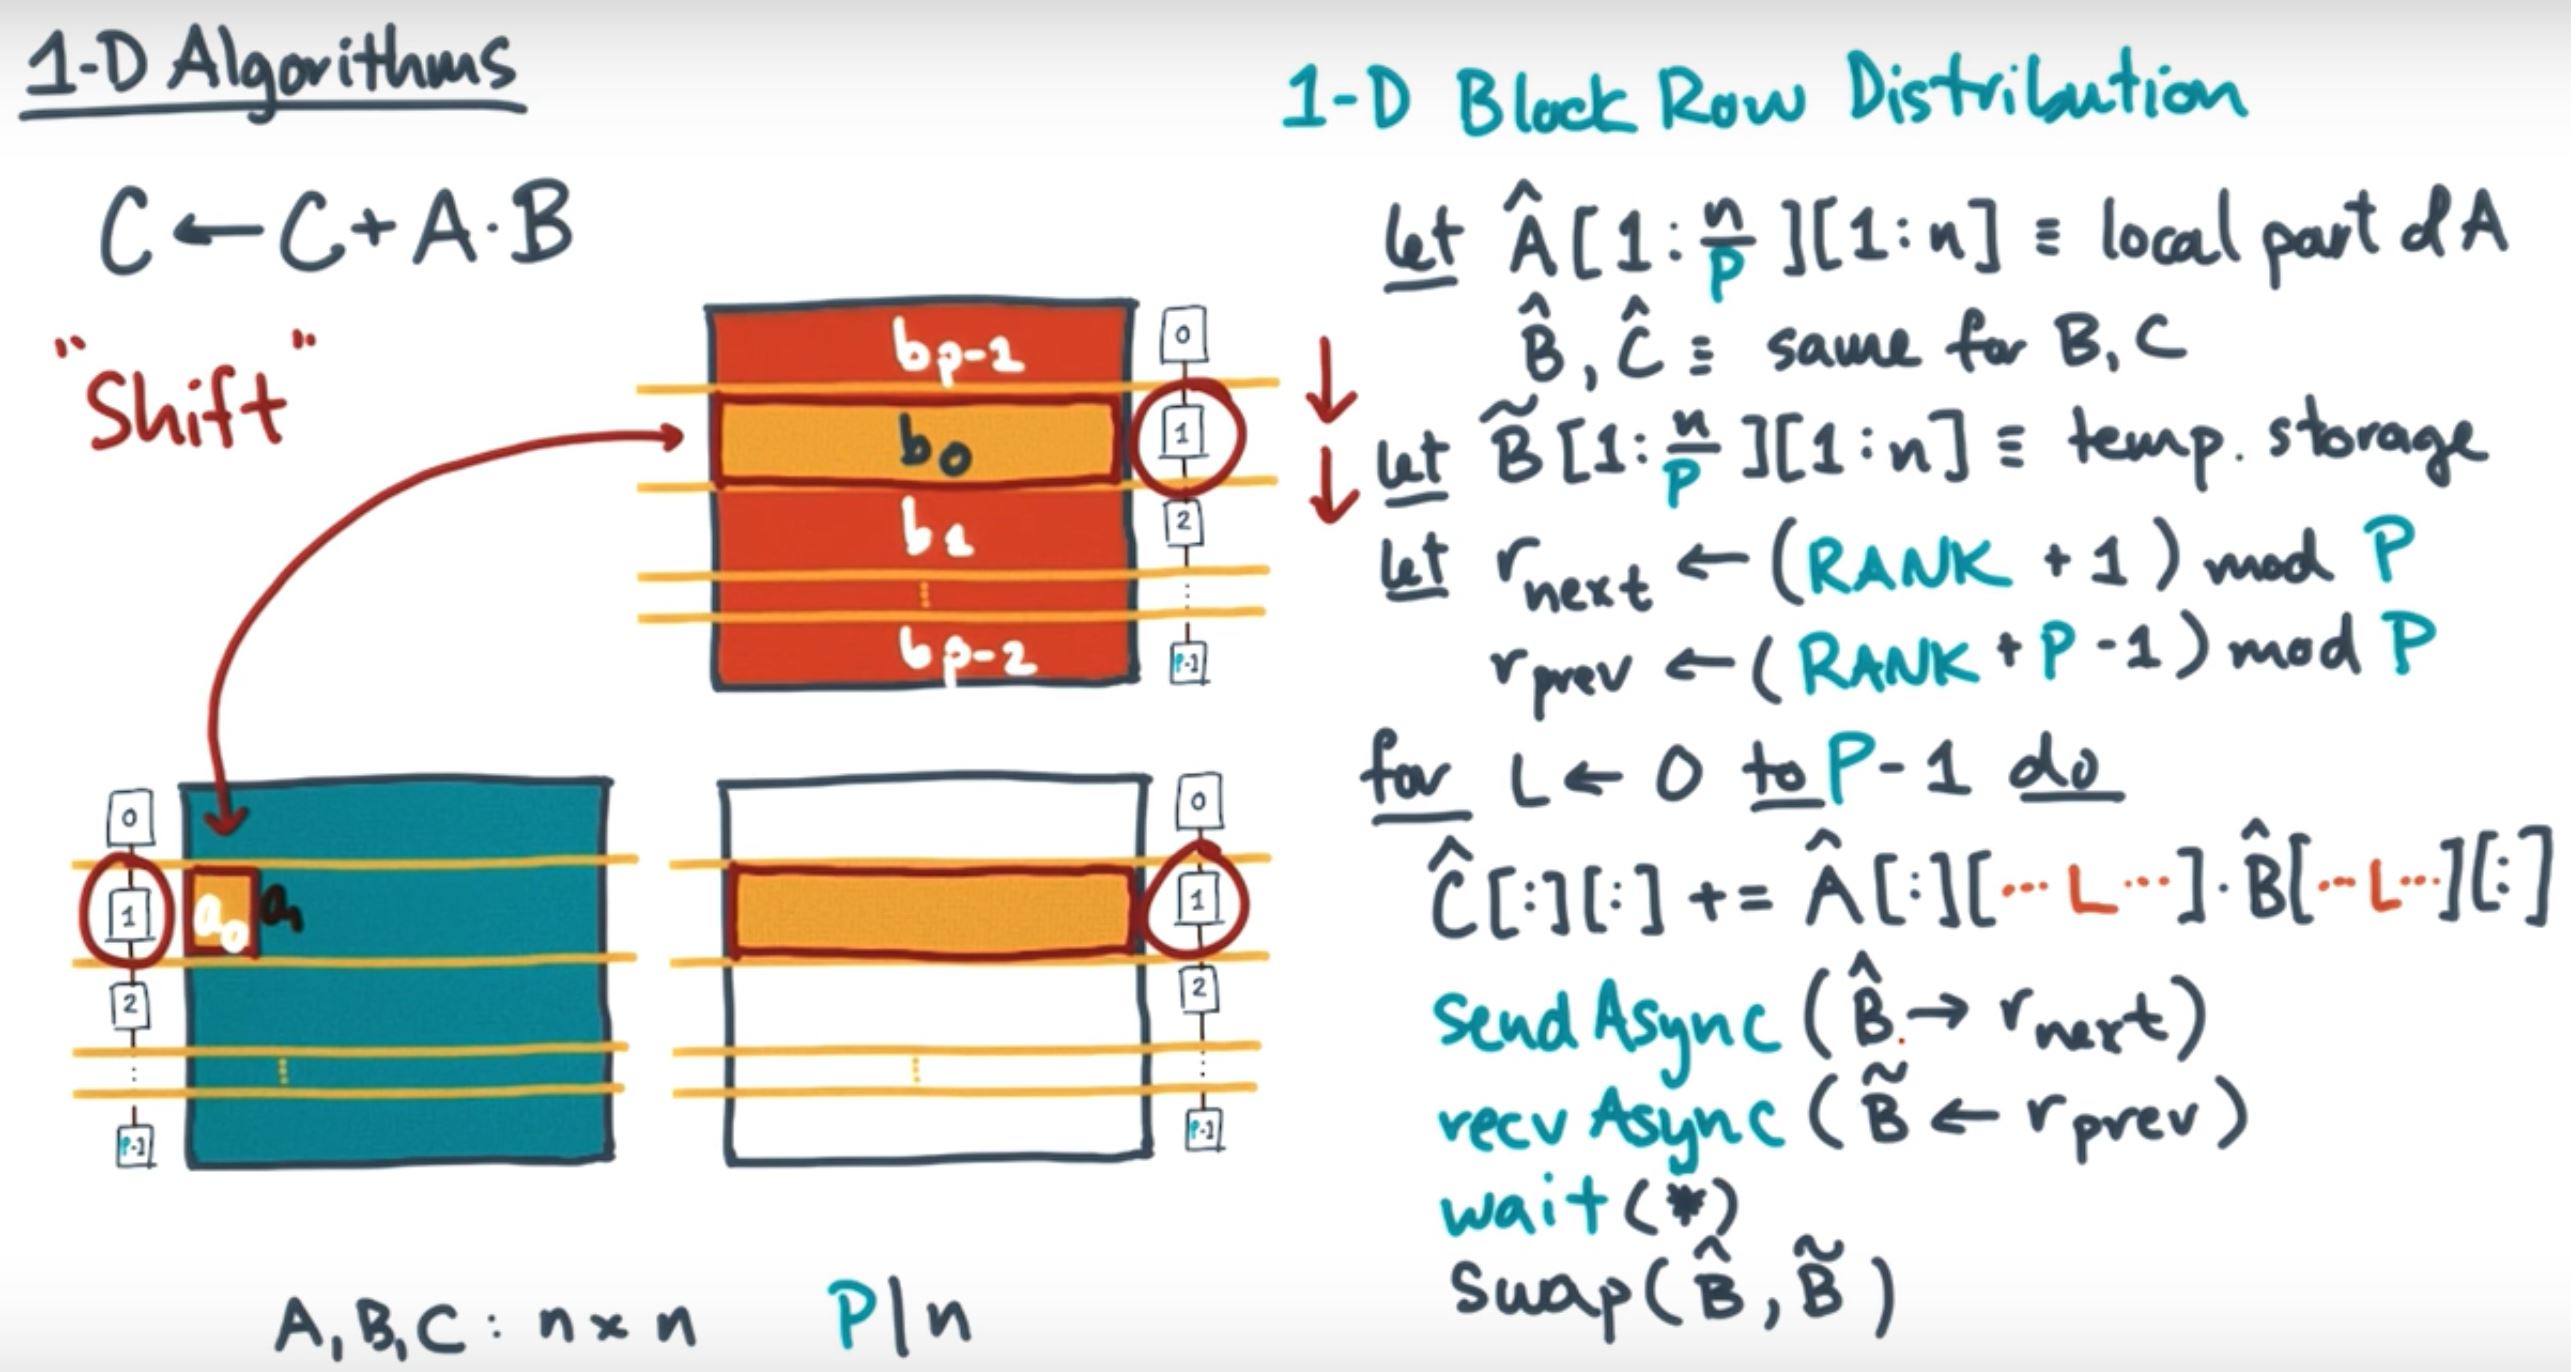 1-D Algorithms
C ← C + A · B
"Shift"
b p-1
b 0
b 1
⋮
b p-2
0
1
2
⋮
P-1
0
1
2
⋮
P-1
a 0
a 1
⋮
0
1
2
⋮
P-1
⋮
A, B, C : n × n P | n
1-D Block Row Distribution
let Â [1 : n/P ][1 : n] ≡ local part of A
B̂, Ĉ ≡ same for B, C
let B̃ [1 : n/P ][1 : n] ≡ temp. storage
let r next ← (RANK + 1) mod P
r prev ← (RANK + P - 1) mod P
for L ← 0 to P - 1 do
Ĉ[:][:] += Â[:][... L ...] · B̂[... L ...][:]
send Async (B̂ → r next)
recv Async (B̃ ← r prev)
wait (*)
swap (B̂, B̃)